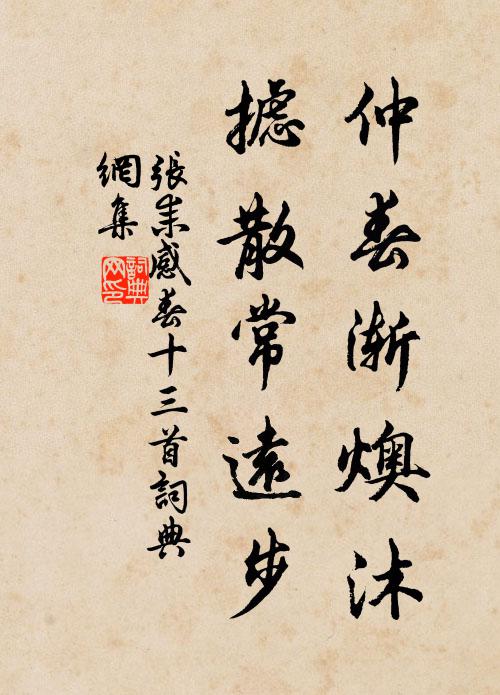 仲春漸燠沐
攄散常遠步
張耒感春十三首詞典
網集
詞典
网印